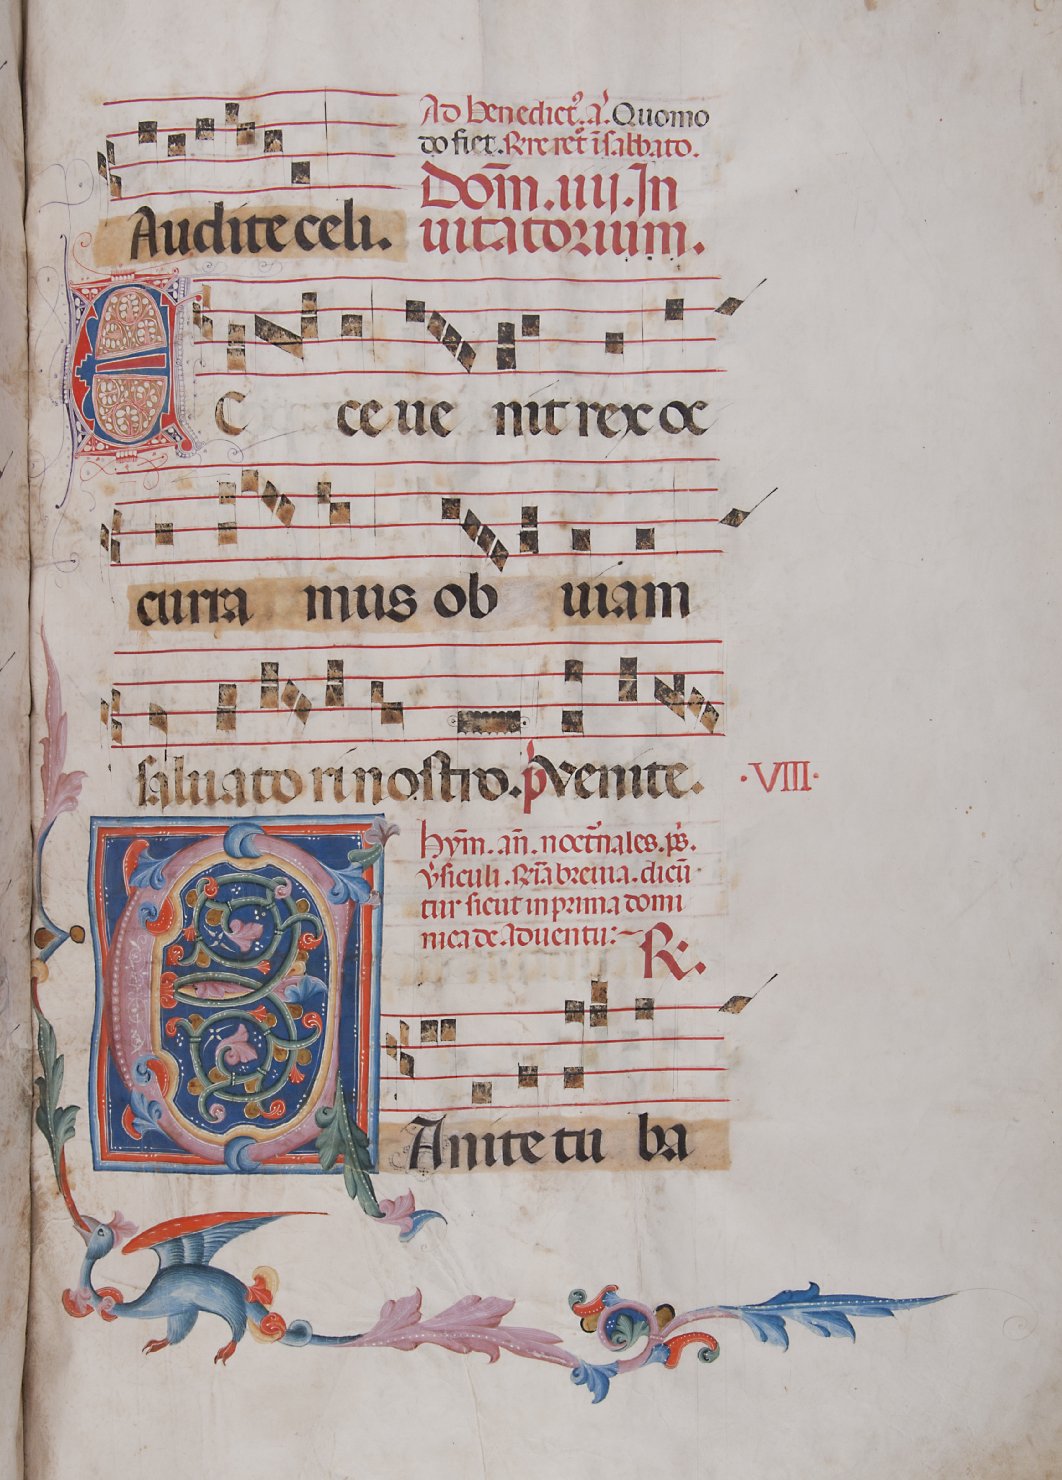 Audite celi.
Ad Benedict᷒. a᷒. Quomo
do fiet. Rre ret᷒ ī sabbato.
Dom̄. iiij. In
uitatorium.
E C ce ue nit rex oc
curra mus ob uiam
saluatori nostro. p̄ Venite.
·VIII·
hym̄. an̄. noct̄nales. p̄s.
v̓siculi. Rn̄a breuia. dicū
tur sicut in prima domi
nica de Aduentu:~ R.
C Anite tu ba